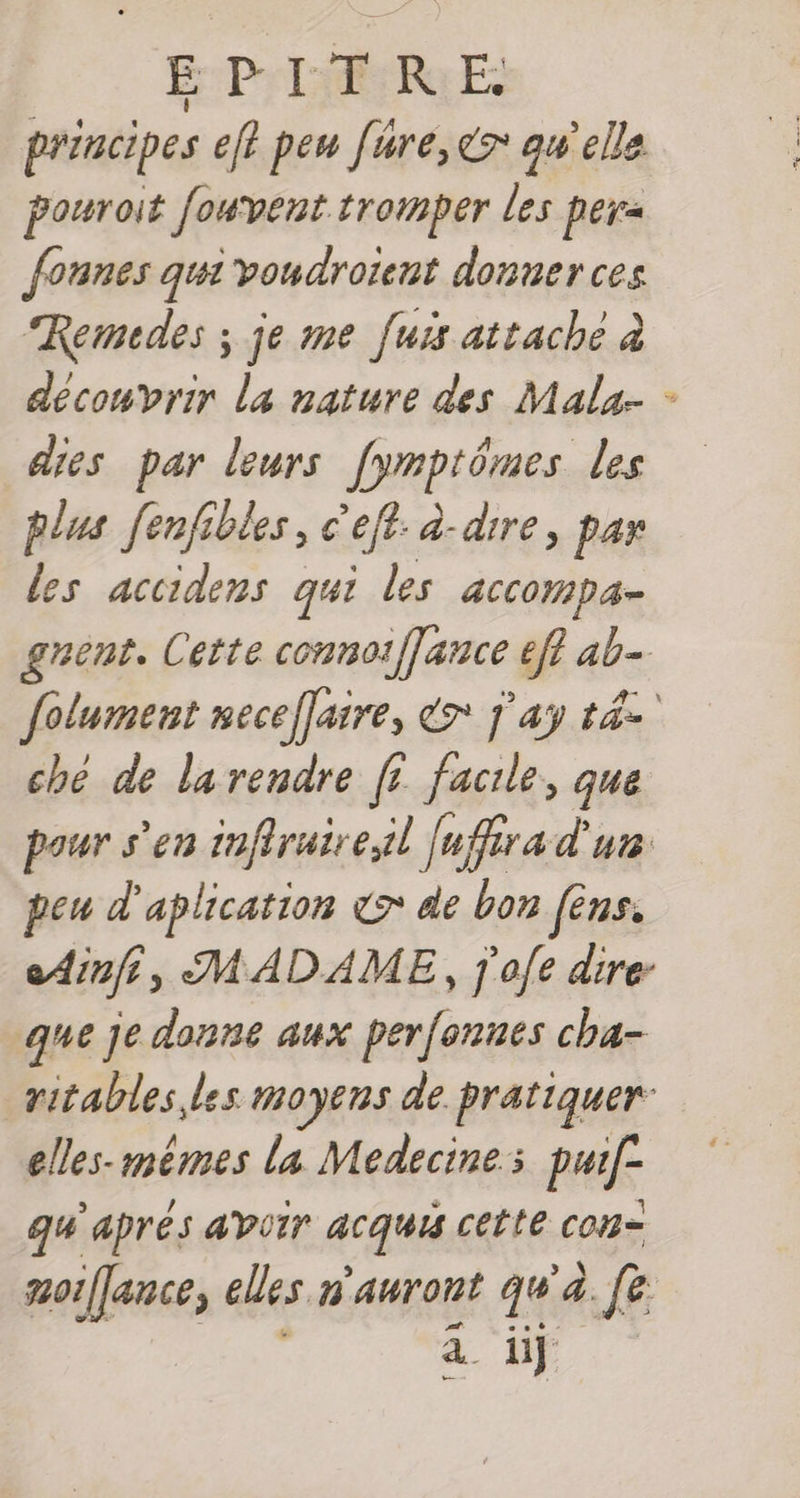 EPITRE.
principes eſt peu ſûre, & qu'elle
pouroit ſouvent tromper les per-
ſonnes qui voudroient donner ces
Remedes ; je me ſuis attaché à
découvrir la nature des Mala-
dies par leurs ſymptômes les
plus ſenſibles, c'eſt-à-dire, par
les accidens qui les accompa-
gnent. Cette connoiſſance eſt ab-
ſolument neceſſaire, & j'ay tâ-
ché de la rendre ſi facile, que
pour s'en inſtruire, il ſuffira d'un
peu d'aplication & de bon ſens.
Ainſi, MADAME, j'oſe dire
que je donne aux perſonnes cha-
ritables, les moyens de pratiquer
elles-mêmes la Medecine ; puiſ-
qu'aprés avoir acquis cette con-
noiſſance, elles n'auront qu'à ſe
ã iij